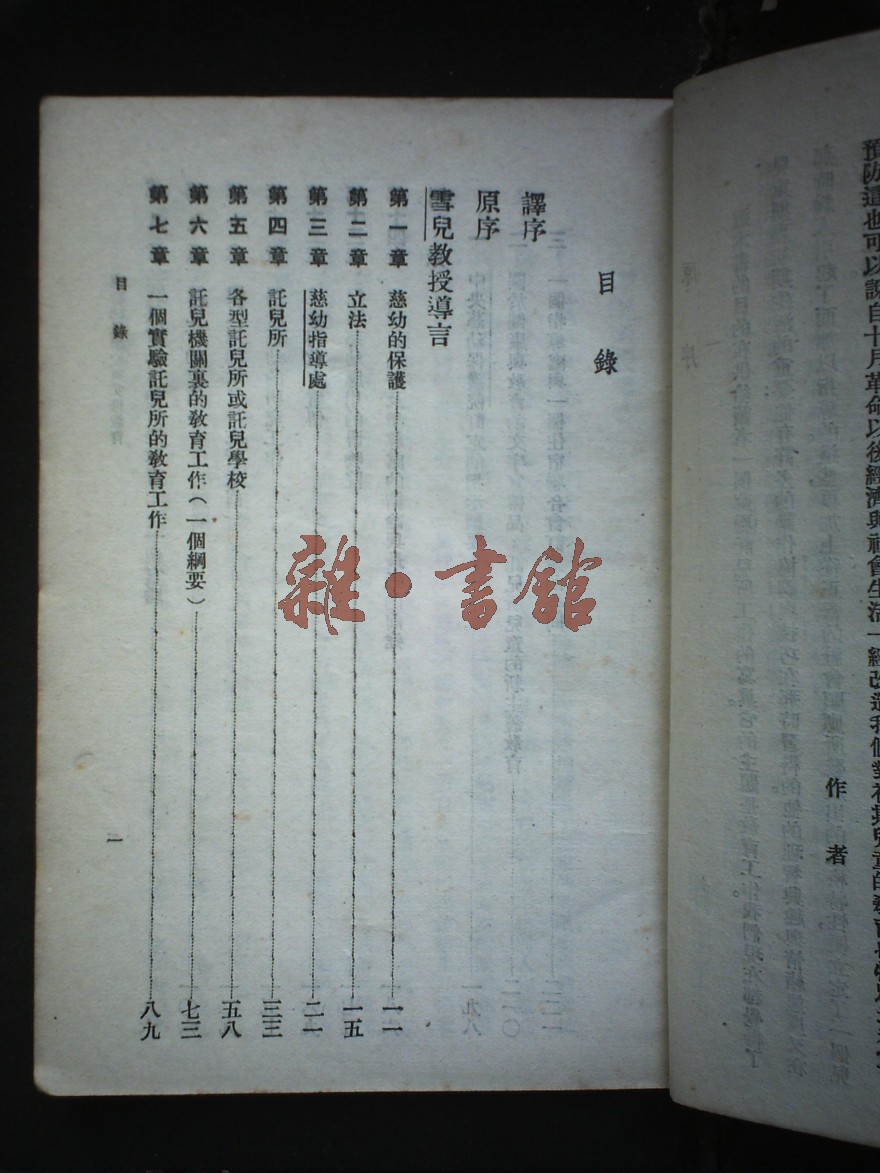 預防這也可以說自十月革命以後經濟與社會生活一經改造
作者
目錄
譯序
原序
雪兒教授導言
第一章 慈幼的保護 一一
第二章 立法 一五
第三章 慈幼指導處 二一
第四章 託兒所 三三
第五章 各型託兒所或託兒學校 五八
第六章 託兒機關裏的教育工作(一個綱要) 七三
第七章 一個實驗託兒所的教育工作 八九
目錄
一
雜·書館